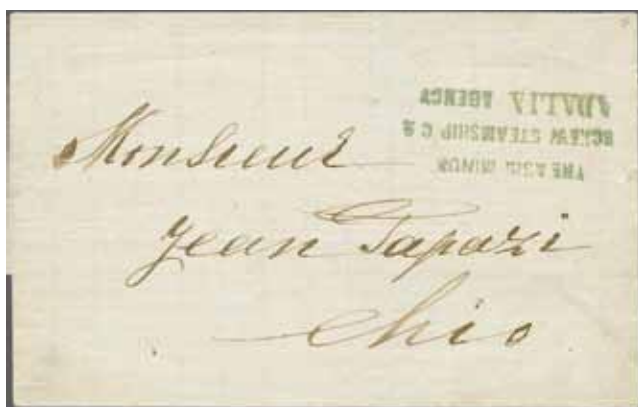 THE ASIA MINOR
SCREW STEAMSHIP Co
ADALIA AGENCY
Monsieur
Jean Papazi
Chio